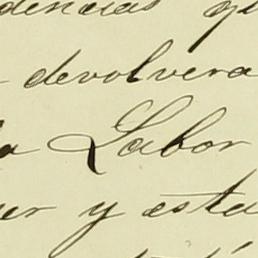 dencias
devolvera
Labor
y esta